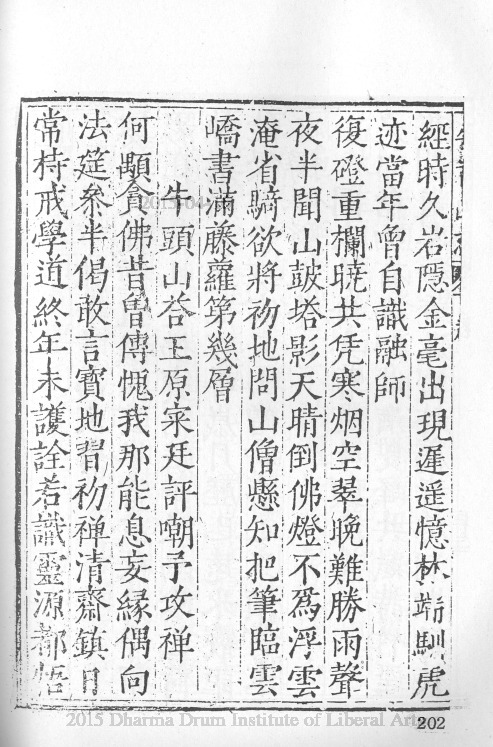 經時久岩隱金毫出現遲遥憶林端馴虎
迹當年曾自識融師
復磴重欄曉共凭寒烟空翠晚難勝雨聲
夜半聞山皷塔影天晴倒佛燈不爲浮雲
淹省騎欲將初地問山僧懸知把筆臨雲
嶠書滿藤蘿第幾層
牛頭山荅王原寀廷評嘲予攻禅
何顒貪佛昔曽傳愧我那能息妄緣偶向
法筵叅半偈敢言寳地習初禅清齋鎮日
常持戒學道終年未護詮若識靈源都悟
2015 Dharma Drum Institute of Liberal Arts
202